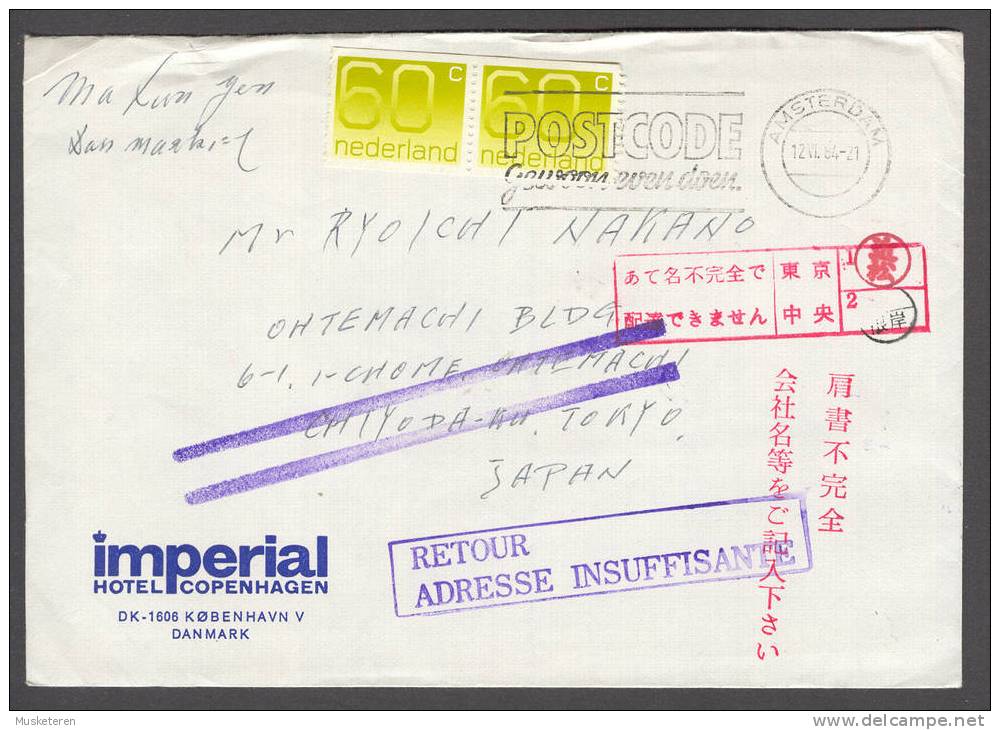 60 c
nederland
60 c
nederland
POSTCODE
Gewoon even doen.
AMSTERDAM
12 VI. 84-21
Mr RYOICHI NAKANO
OHTEMACHI BLDG
6-1, 1-CHOME, OHTEMACHI
CHIYODA-KU, TOKYO,
JAPAN
あて名不完全で
配達できません
東京
中央
1
2
肩書不完全
会社名等をご記入下さい
RETOUR
ADRESSE INSUFFISANTE
imperial
HOTEL COPENHAGEN
DK-1606 KØBENHAVN V
DANMARK
Musketeren
delcampe.net